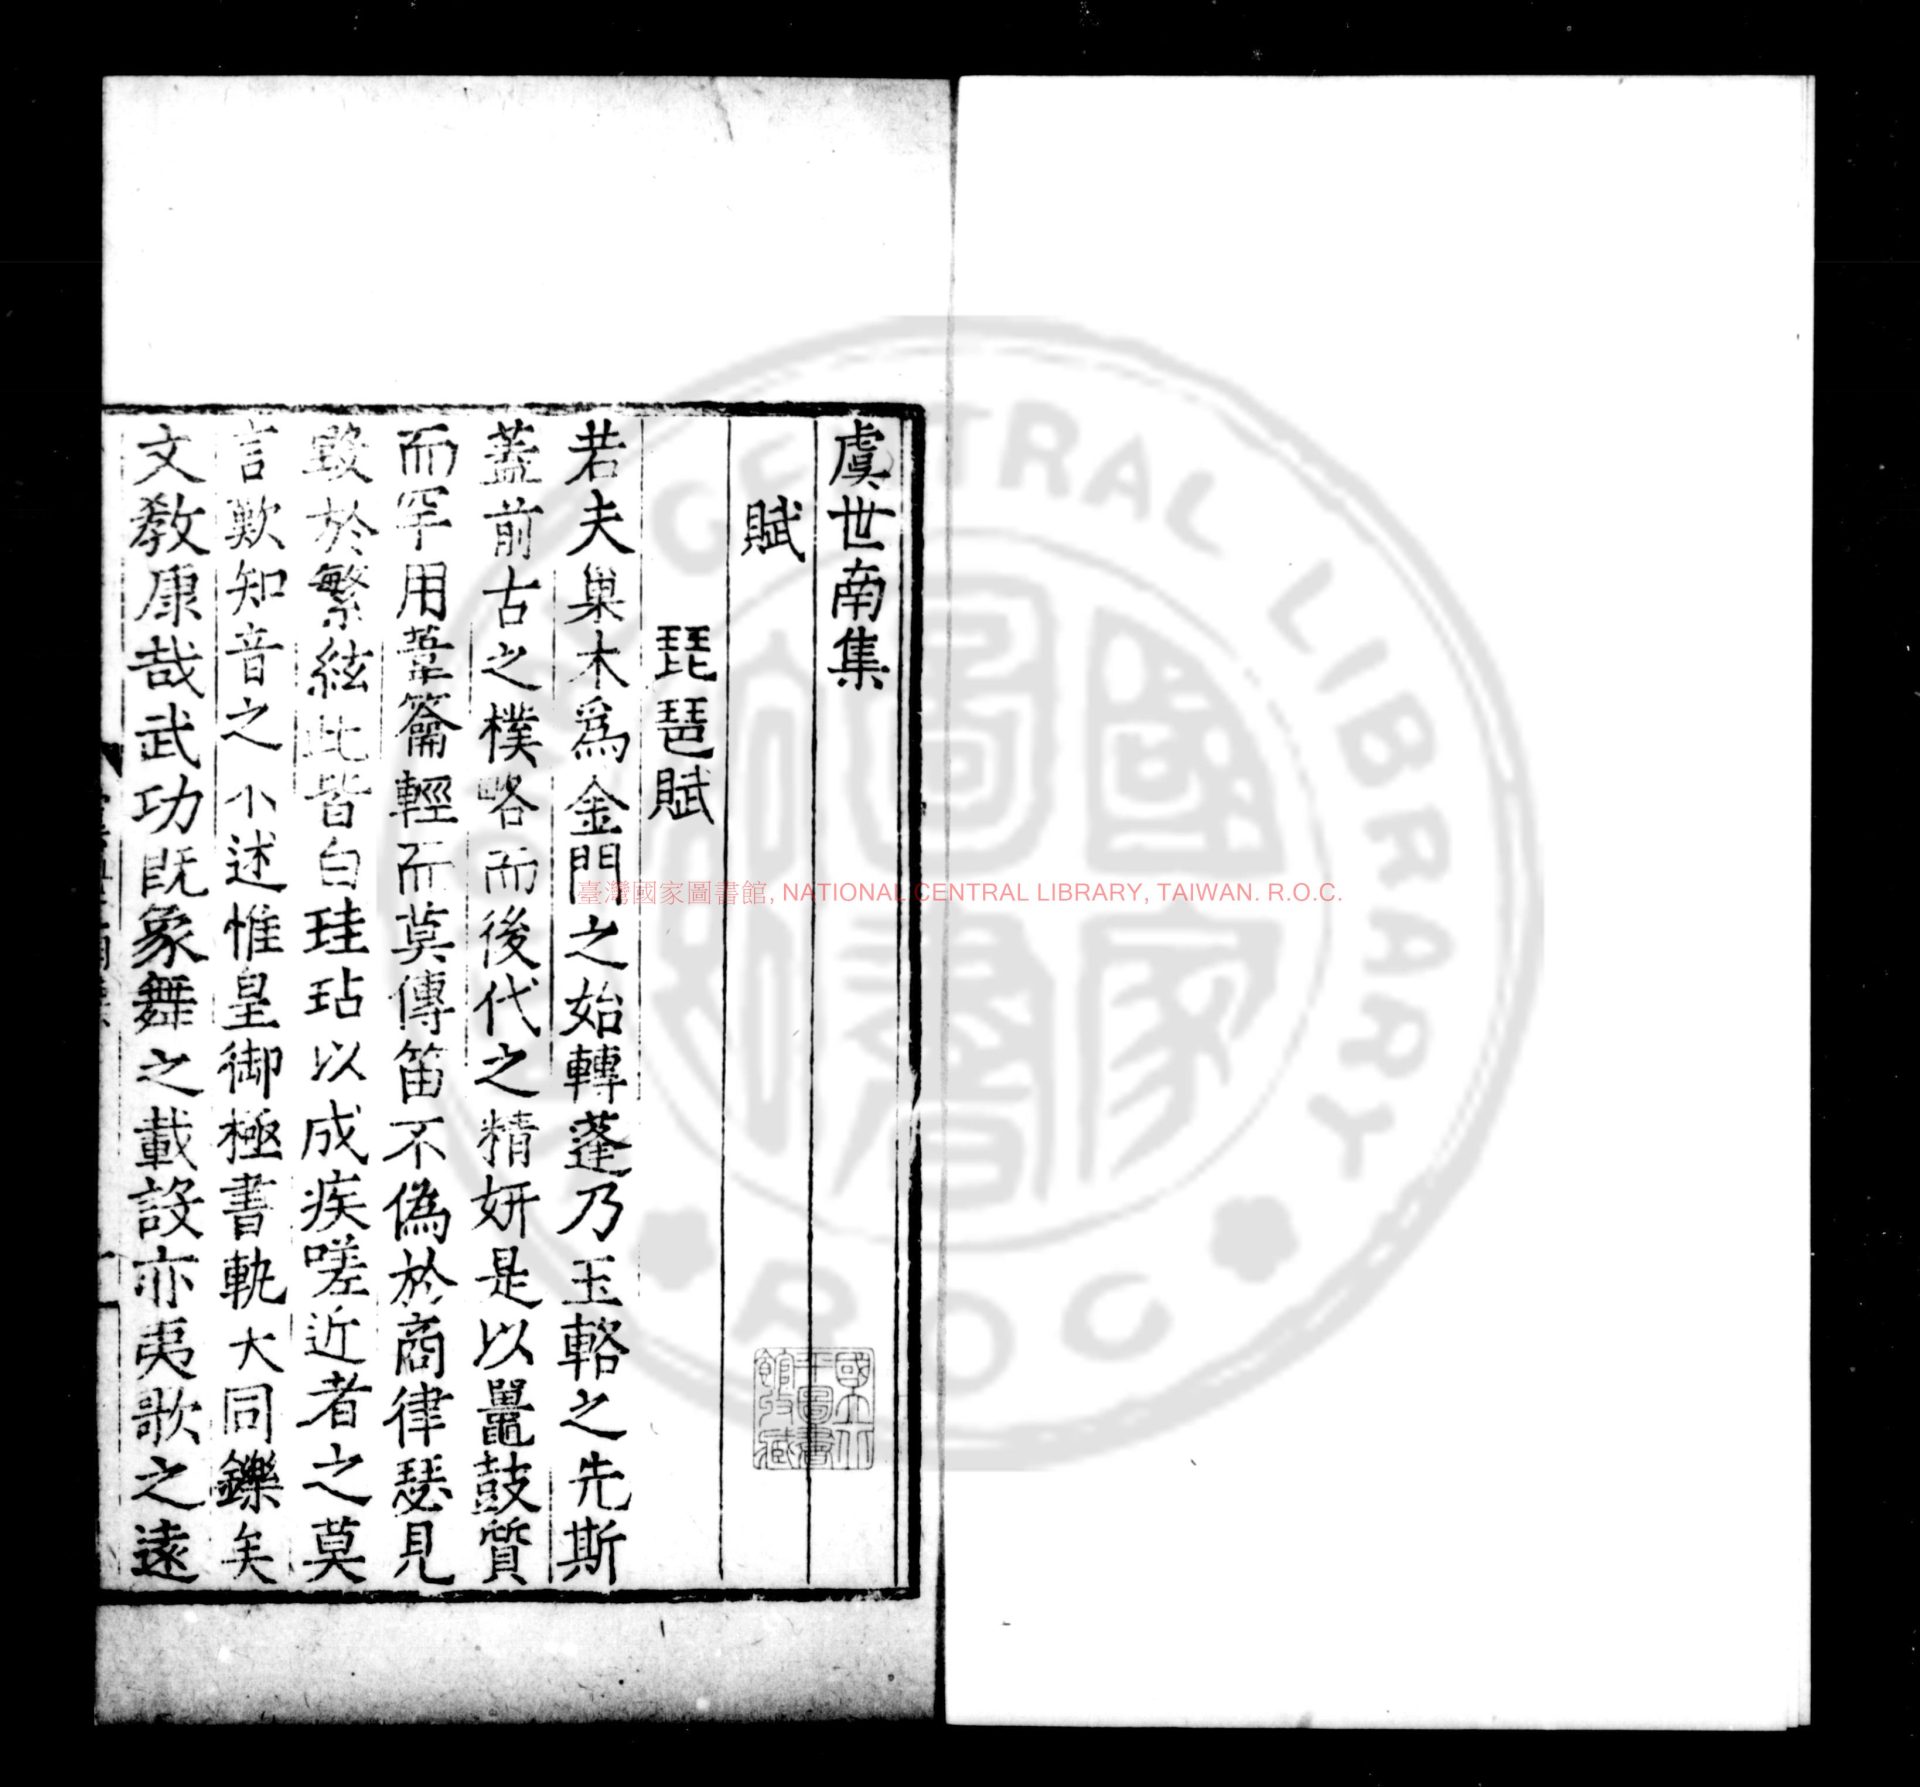 虞世南集
賦
琵琶賦
若夫巢木爲金門之始轉蓬乃玉輅之先斯
蓋前古之樸略而後代之精妍是以鼉鼓質
而罕用葦籥輕而莫傳笛不偽於商律瑟見
毀於繁絃此皆白珪玷以成疾嗟近者之莫
言歎知音之小述惟皇御極書軌大同鑠矣
文教康哉武功旣象舞之載設亦夷歌之遠
國立中央圖書館收藏
臺灣國家圖書館, NATIONAL CENTRAL LIBRARY, TAIWAN. R.O.C.